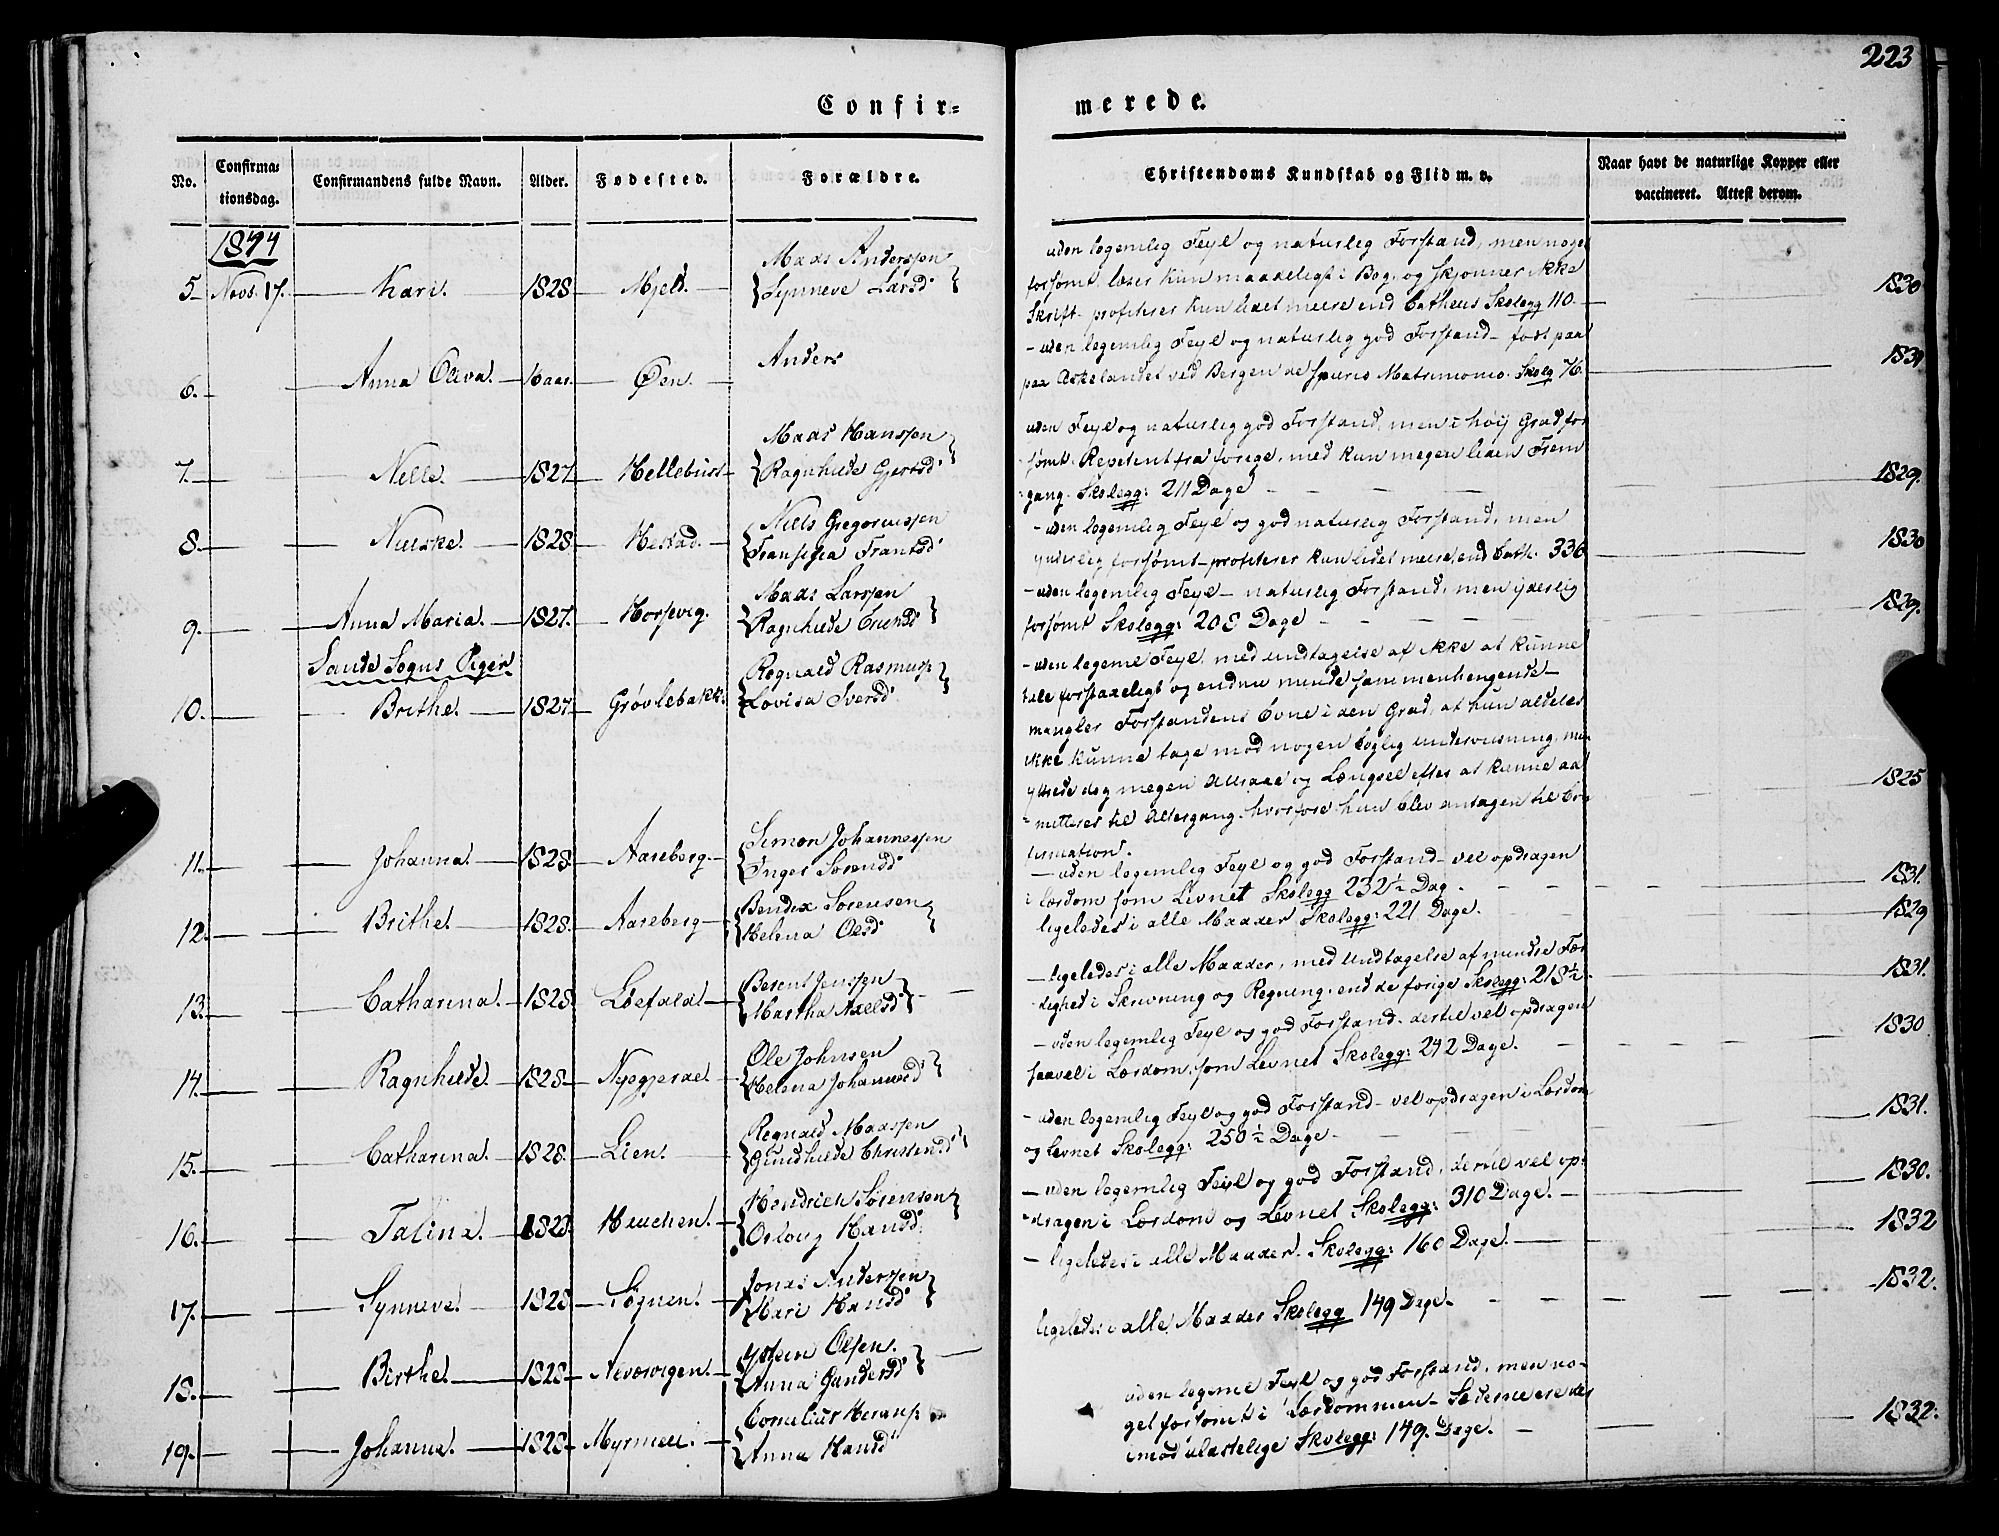 223
Confir=
merede.
No.
Confirma-
tionsdag.
Confirmandens fulde Navn.
Alder.
Fødested.
Forældre.
Christendoms Kundskab og Flid m. v.
Naar havt de naturlige Kopper eller
vaccineret. Attest derom.
1844
5. Novb. 17. Kari. 1828 Mjeld.
Mads Anderssen
Synneve Larsd
uden legemlig Feyl og naturlig Forstand, men noget
forsømt, læser kun maadeligt i Bog, og skjønner ikke
Skrift profiterer kun lidet meere end Cathecis Skolegg 110. 1830
6. Anna Oliva. Øen.
Anders
- uden legemlig Feyl og naturlig god Forstand - født paa
paa Askelandet ved Bergen de spurio Matrimonio. Skolg 76. 1830
7. Nille. 1827 Hellebust
Mads Hanssen
Ragnhilde Gjertsd
uden Feyl og naturlig god Forstand, men i høiy Grad for
sømt. Repetent fra forige, med kun megen liden Frem
gang. Skolegg: 211 Dage 1829.
8. 1828 Hestad.
Niels Gregoriussen
Fransisca Frantsd
- uden legemlig Feyl og god naturlig Forstand, men
yderlig forsømt - profiterer kun lidet meere end Cath. 336 1830
9. Anna Maria. 1827. Horsevig.
Mads Larssen
Ragnhilde Eriksd
- uden legemlig Feyl - naturlig Forstand, men yderlig
forsømt Skolegg: 208 Dage 1829.
Sande Sogns Piger
10. Brithe. 1827 Grøvlebakk.
Rognald Rasmuss
Lovisa Iversd
- uden legeml Feyl, med undtagelse af ikke at kunne
tale forstaaeligt og endnu mindre sammenhengende -
mangler Forstandens Evne i den Grad, at hun aldeles
ikke kunne tage mod nogen Boglig underviisning, men
yttrede dog megen Attraae og Længsel efter at kunne ad
mitteres til Altergang, hvorfore hun blev antagen til Con
firmation. 1825
11. Johanna. 1828. Aareberg
Simon Johannessen
Inger Sørensd
- uden legemlig Feyl og god Forstand - vel opdragen
i Lærdom som Levnet Skolegg 232½ Dag. 1831.
12. Brithe. 1828. Aareberg
Bendix Sørensen
Helena Olsd
ligeledes i alle Maader Skolegg: 221 Dage. 1829
13. Catharina. 1828. Løefald
Berent Jenssen
Martha Axelsd
- ligeledes i alle Maader, med Undtagelse af mindre Fær
dighed i Skrivning og Regning, end de forige Skolegg: 218½ 1831.
14. Ragnhilde. 1828 Nygjerde.
Ole Johnsen
Helena Johannesd
- uden legemlig Feyl og god Forstand - dertil vel opdragen
saavel i Lærdom som Levnet Skolegg: 242 Dage. 1830
15. Catharina. 1828. Lien.
Regnald Madssen
Gundhilde Christensd
- uden legemlig Feyl og god Forstand - vel opdragen i Lærdom
og Levnet Skolegg: 250½ Dage 1831.
16. Talina. 1828
Hendrich Sørensen
Oslaug Hansd
- uden legemlig Feyl og god Forstand, dertil vel op-
dragen i Lærdom og Levnet Skolegg: 310 Dage. 1830.
17. Synneve. 1828 Søgnen.
Jonas Anderssen
Mari Hansd
- ligeledes i alle Maader. Skolegg: 160 Dage. 1832
18. Birthe. 1828
Olsen.
Anna Gundersd
ligeledes i alle Maader Skolegg 149 Dage. 1832.
19. Johanna. 1828
Cornelius Hermanss
Anna Hansd
uden legeml Feyl og god Forstand, men no-
get forsømt i Lærdommen - Sæderne ere der
imod ulastelige Skolegg: 149. Dage. 1832.